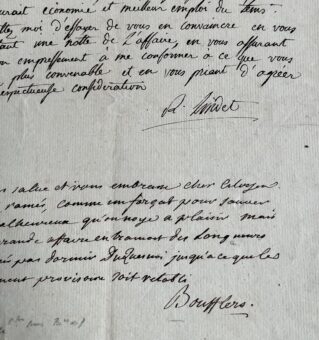 urait économie et meilleur emploi du tems.
ttez moi d'essayer de vous en convaincre en vous
ant une notte de L'affaire, en vous assurant
on empressement à me conformer à ce que vous
plus convenable et en vous priant d'agréer
espectueuse considération
R. Lindet
salue et vous embrasse cher citoyen
ramés, comme un forçat pour sauver
alheureux qu'on noye a plaisir mais
grande affaire en trainant des longueurs
pas dormir Duquesnoi jusqu'a ce que le
ment provisoire soit retabli
Boufflers.